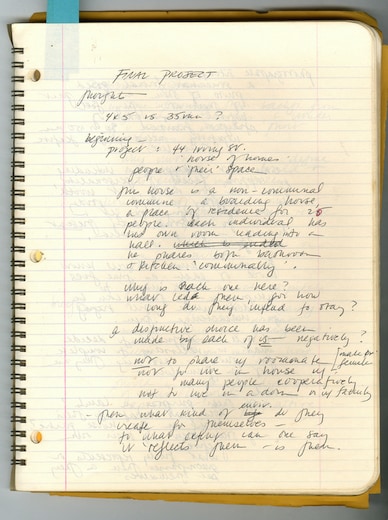 FINAL PROJECT
thought
4x5 vs 35mm ?
beginning
project : 44 Irving St.
'house of homes
people & 'their' space
This house is a non-communal
commune a boarding house,
a place of residence for 25
people. Each individual has
his own room leading into a
hall. which is
he shares both bathroom
& kitchen 'communally'.
Why is each one here?
What led them, for how
long do they intend to stay?
a distinctive choice has been
made by each of us negatively?
not to share w/ roommate / male or female
not to live in house w/
many people cooperatively
not to live in a dorm or w/ family
- then what kind of envir. do they
create for themselves –
to what extent can one say
it reflects them – is them.